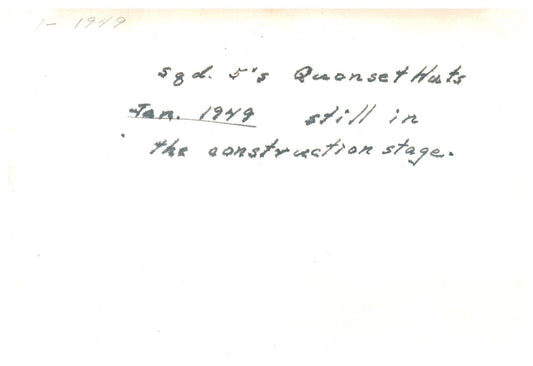 1- 1949
sqd. 5's Quonset Huts
Jan. 1949 still in
the construction stage.